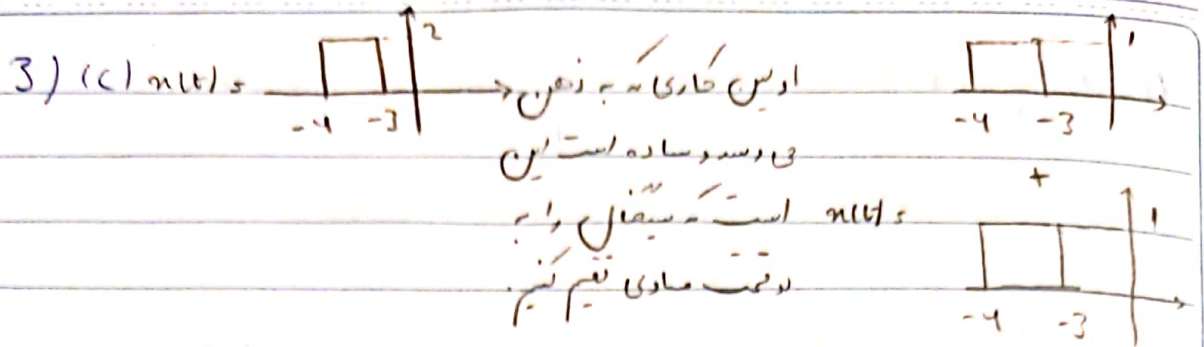 3) (c) x(t) =
2
-4 -3
اولین کاری که به ذهن
می رسد و ساده است این
است که سیگنال را به
دو قسمت مساوی تقسیم کنیم.
x(t) =
1
-4 -3
+
1
-4 -3